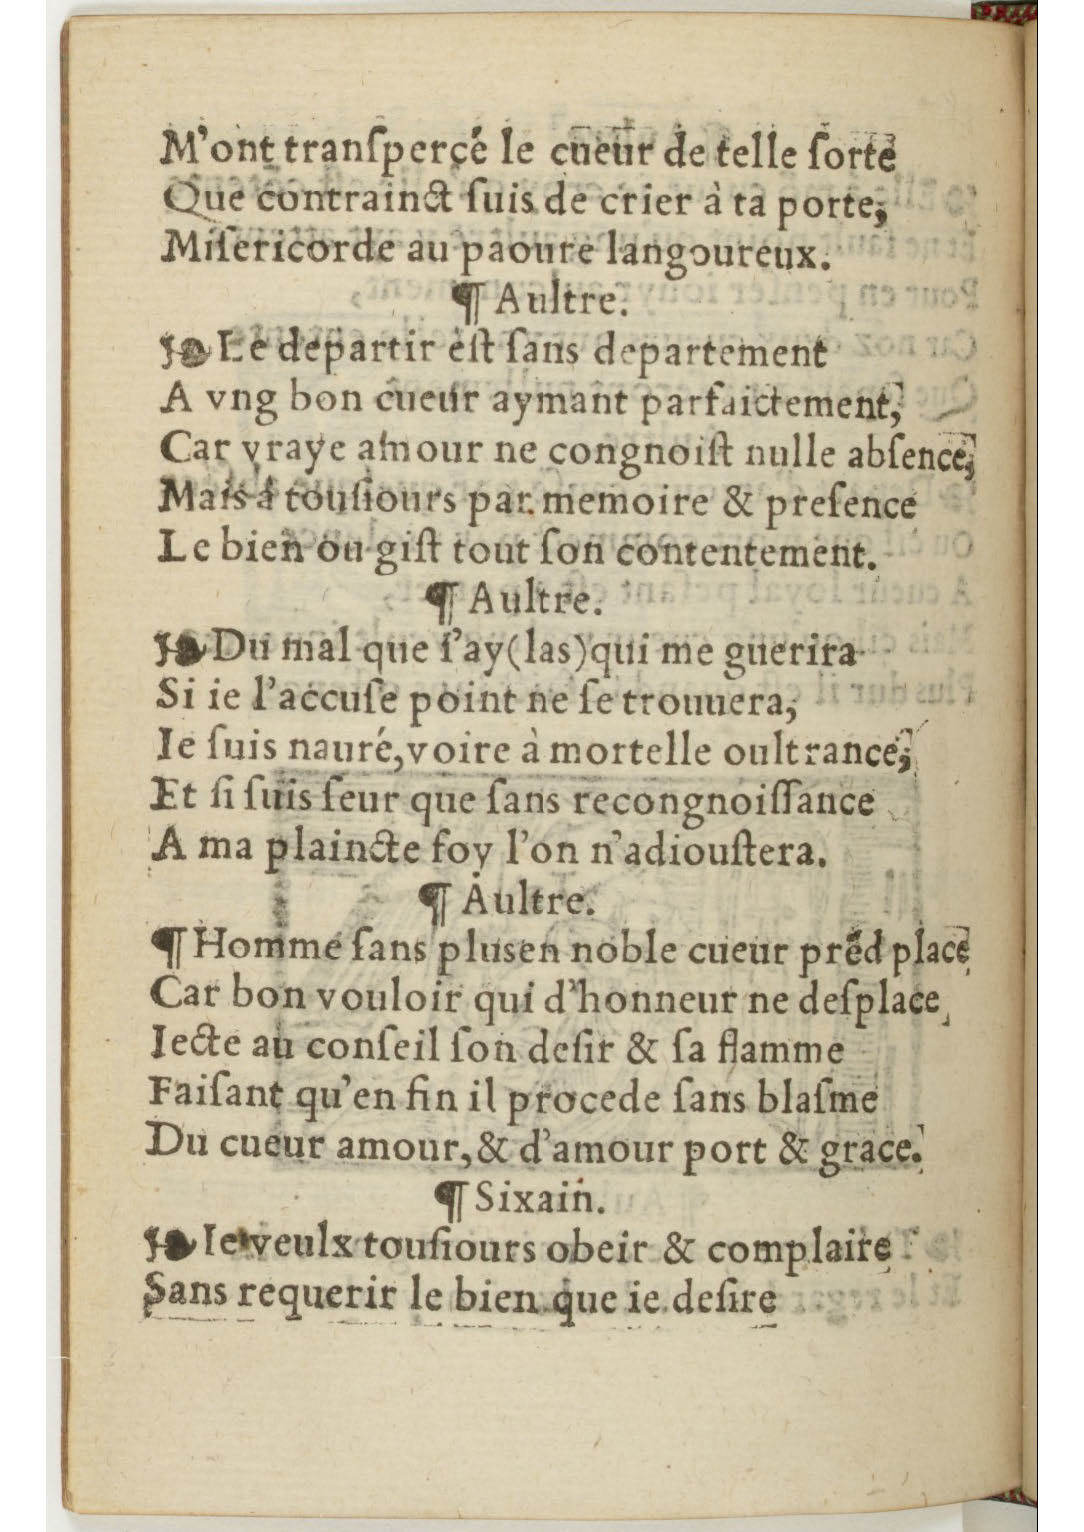 M'ont tranſperçé le cueur de telle ſorte
Que contrainct ſuis de crier à ta porte,
Miſericorde au paoure langoureux.
¶ Aultre.
❧ Le departir eſt ſans departement
A vng bon cueur aymant parfaictement,
Car vraye amour ne congnoiſt nulle abſence,
Mais á touſiours par memoire & preſence
Le bien ou giſt tout ſon contentement.
¶ Aultre.
❧ Du mal que i'ay (las) qui me guerira
Si ie l'accuſe point ne ſe trouuera,
Ie ſuis nauré, voire à mortelle oultrance,
Et ſi ſuis ſeur que ſans recongnoiſſance
A ma plaincte foy l'on n'adiouſtera.
¶ Aultre.
¶ Homme ſans plusen noble cueur prẽd place
Car bon vouloir qui d'honneur ne deſplace,
Iecte au conſeil ſon deſir & ſa flamme
Faiſant qu'en fin il procede ſans blaſme
Du cueur amour, & d'amour port & grace.
¶ Sixain.
❧ Ie veulx touſiours obeir & complaire
Sans requerir le bien que ie deſire